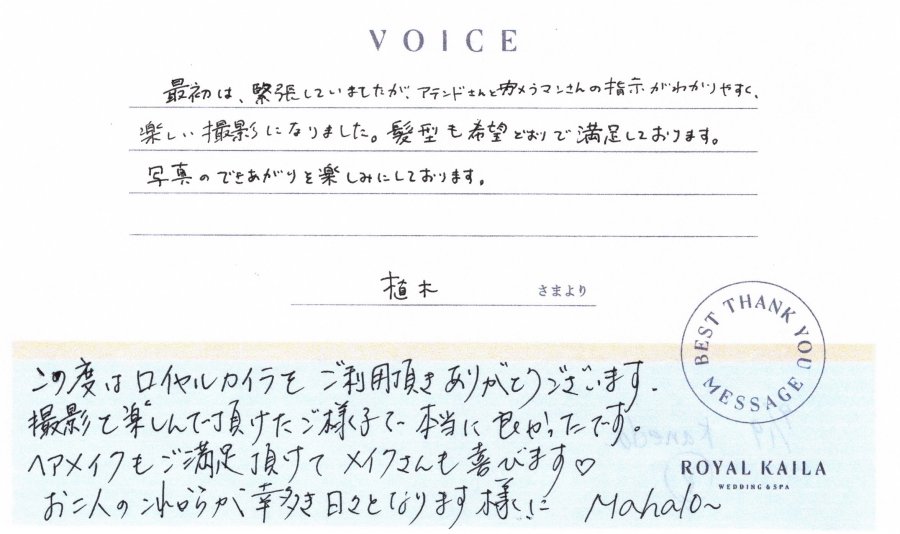 VOICE
最初は、緊張していましたが、アテンドさんとカメラマンさんの指示がわかりやすく、
楽しい撮影になりました。髪型も希望どおりで満足しております。
写真のできあがりを楽しみにしております。
植木 さまより
BEST THANK YOU MESSAGE
この度はロイヤルカイラをご利用頂きありがとうございます。
撮影を楽しんで頂けたご様子で本当に良かったです。
ヘアメイクもご満足頂けてメイクさんも喜びます♡
お二人のこれからが幸多き日々となります様に Mahalo~
ROYAL KAILA
WEDDING & SPA